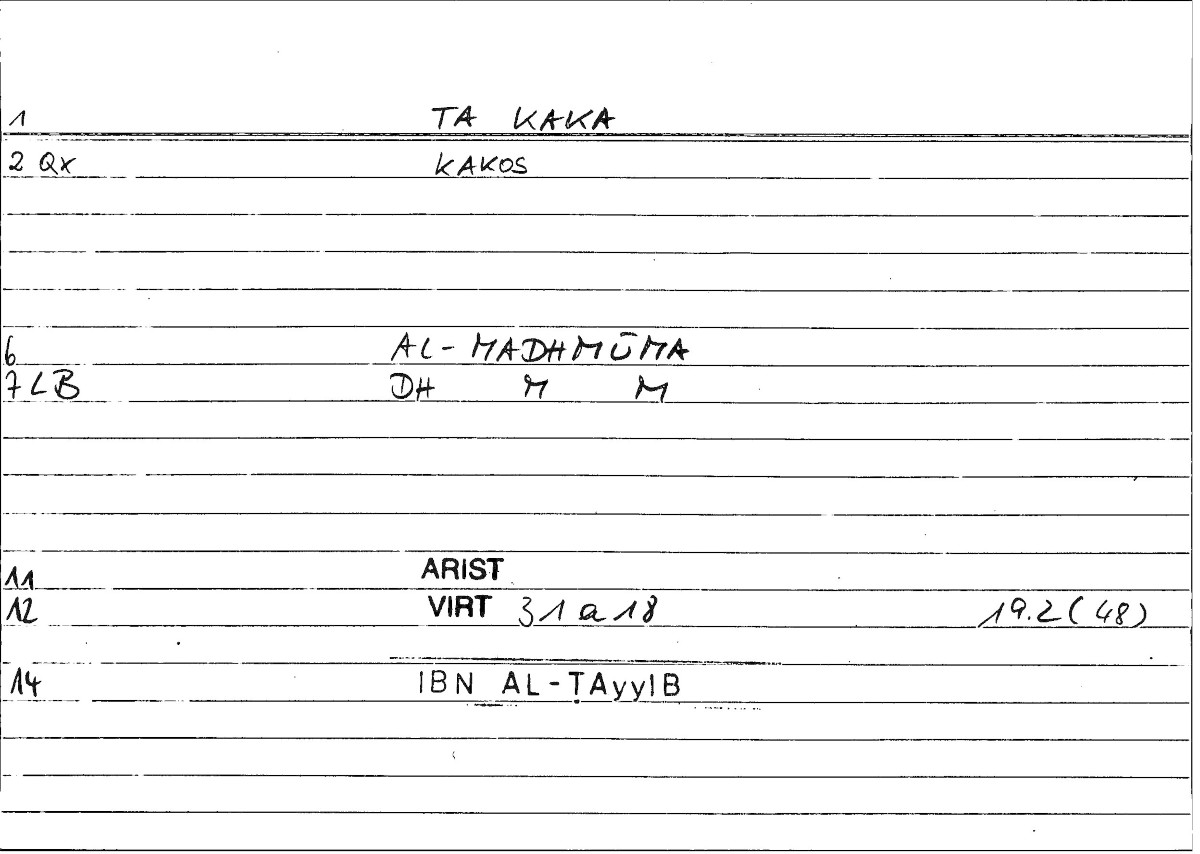 1 TA KAKA
2 QX KAKOS
6 AL-MADHMŪMA
7 LB DH M M
11 ARIST
12 VIRT 31 a 18 19.2 (48)
14 IBN AL-ṬAyyIB